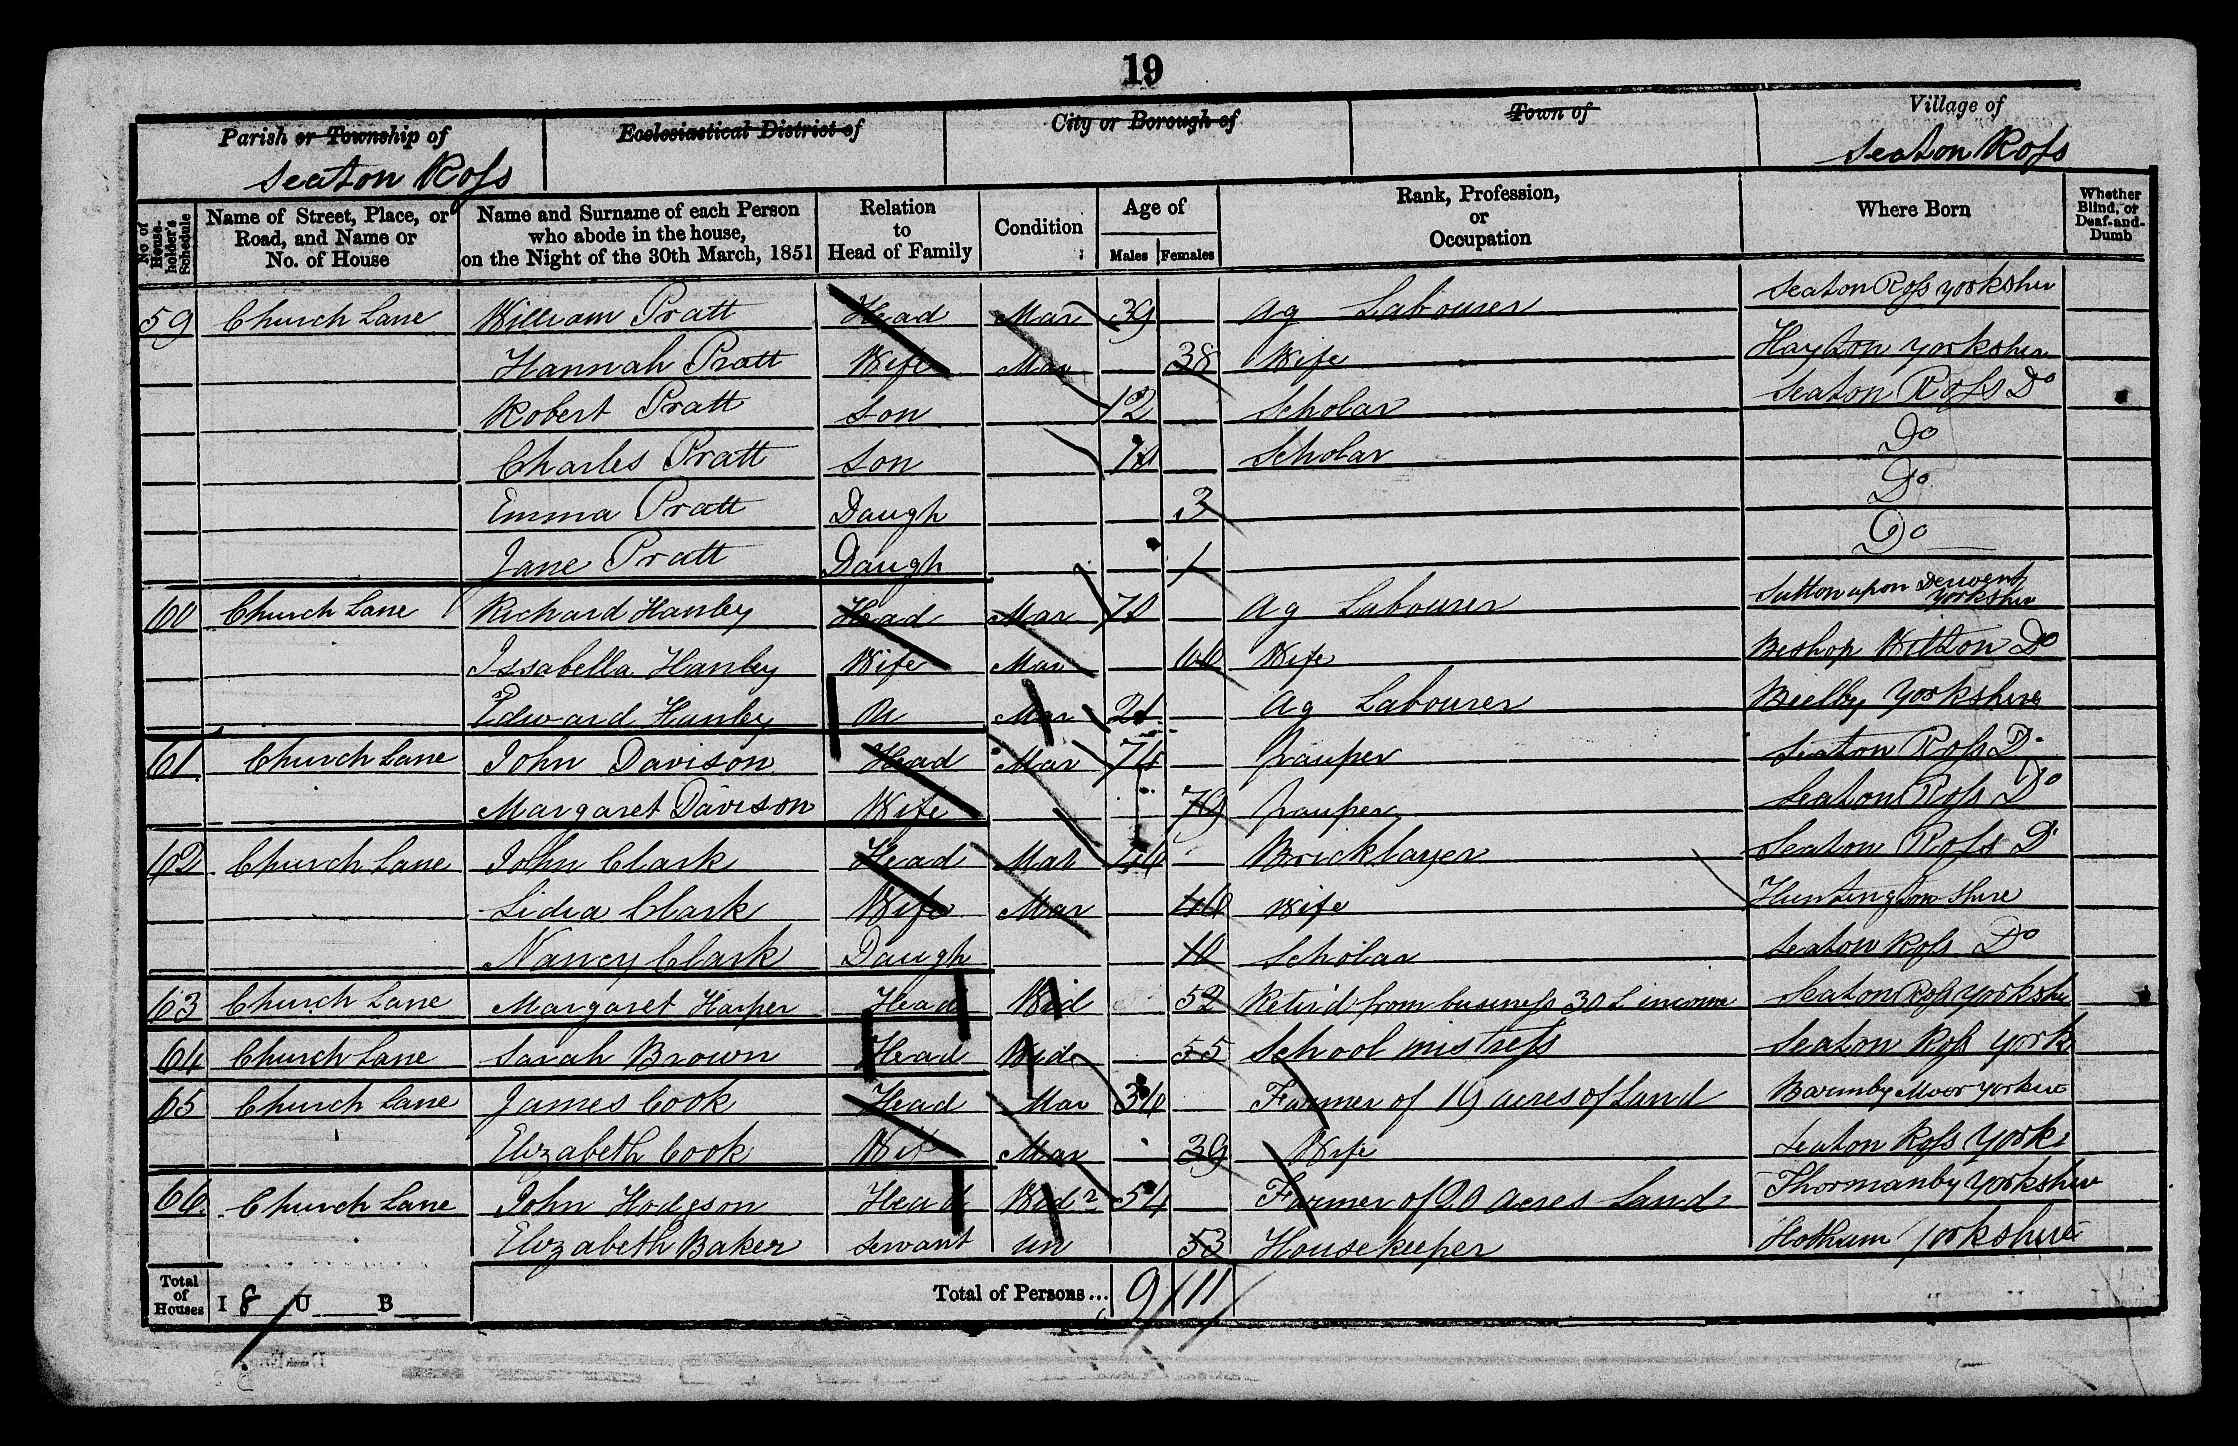 19
Parish or Township of Ecclesiastical District of City or Borough of Town of Village of
Seaton Ross Seaton Ross
No. of House-holder's Schedule Name of Street, Place, or Road, and Name or No. of House Name and Surname of each Person who abode in the house, on the Night of the 30th March, 1851 Relation to Head of Family Condition Age of Males Females Rank, Profession, or Occupation Where Born Whether Blind, or Deaf-and-Dumb
59 Church Lane William Pratt Head Mar 39 Ag Labourer Seaton Ross Yorkshire
Hannah Pratt Wife Mar 38 Wife Hayton Yorkshire
Robert Pratt Son 12 Scholar Seaton Ross Do
Charles Pratt Son Scholar Do
Emma Pratt Daugh 3 Do
Jane Pratt Daugh 1 Do
60 Church Lane Richard Hanley Head Mar 70 Ag Labourer Sutton upon Derwent Yorkshire
Issabella Hanley Wife Mar 66 Wife Beshop Wilton Do
Edward Hanley Mar 21 Ag Labourer Bielby Yorkshire
61 Church Lane John Davison Head Mar 74 Pauper Seaton Ross Do
Margaret Davison Wife 79 Pauper Seaton Ross Do
62 Church Lane John Clark Head Mar 44 Bricklayer Seaton Ross Do
Lidia Clark Wife Mar Wife Huntingtonshire
Nancy Clark Daugh 10 Scholar Seaton Ross Do
63 Church Lane Margaret Harper Head Wid 52 Retir'd from business 30 L income Seaton Ross Yorkshire
64 Church Lane Sarah Brown Head Wid 55 School mistress Seaton Ross York
65 Church Lane James Cook Head Mar 36 Farmer of 19 acres of Land Barmby Moor Yorkshire
Elizabeth Cook Wife Mar 39 Wife Seaton Ross York
66 Church Lane John Hodgson Head Widr 54 Farmer of 20 acres Land Thormanby Yorkshire
Elizabeth Baker Servant Un 53 Housekeeper Hotham Yorkshire
Total of Houses I 8 U B Total of Persons... 9 11